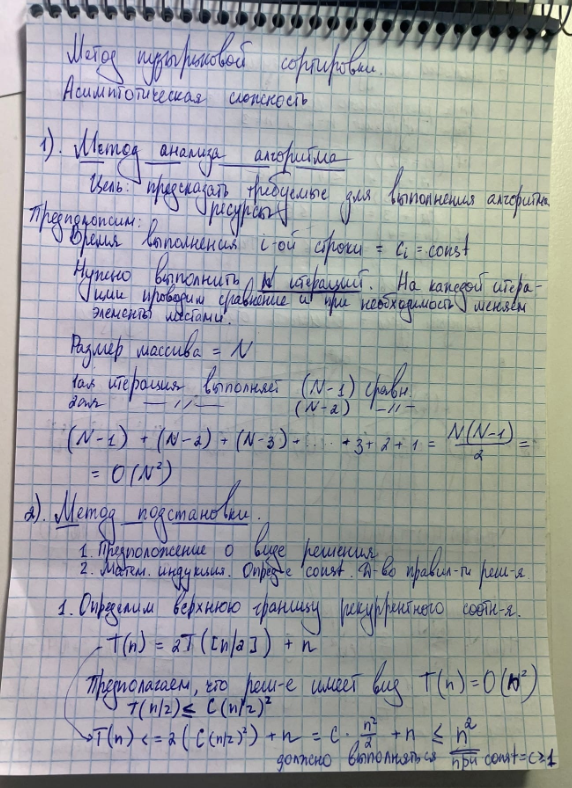 Метод пузырьковой сортировки.
Асимптотическая сложность
1). Метод анализа алгоритма
Цель: предсказать требуемые для выполнения алгоритма
ресурсы
Предположим:
Время выполнения i-ой строки = ci = const
Нужно выполнить N итераций. На каждой итера-
ции проводим сравнение и при необходимость меняем
элементы местами.
Размер массива = N
1ая итерация выполняет (N-1) сравн.
2ая —〃— (N-2) —〃—
(N-1) + (N-2) + (N-3) + .... + 3 + 2 + 1 = N(N-1)/2 =
= O(N²)
2). Метод подстановки.
1. Предположение о виде решения
2. Матем. индукция. Опред-е const. Д-во правил-ти реш-я.
1. Определим верхнюю границу рекуррентного соотн-я.
T(n) = 2T([n/2]) + n
Предполагаем, что реш-е имеет вид T(n) = O(n²)
T(n/2) ≤ C(n/2)²
T(n) <= 2(C(n/2)²) + n = C · n²/2 + n ≤ n²
должно выполняться при const=c≥1